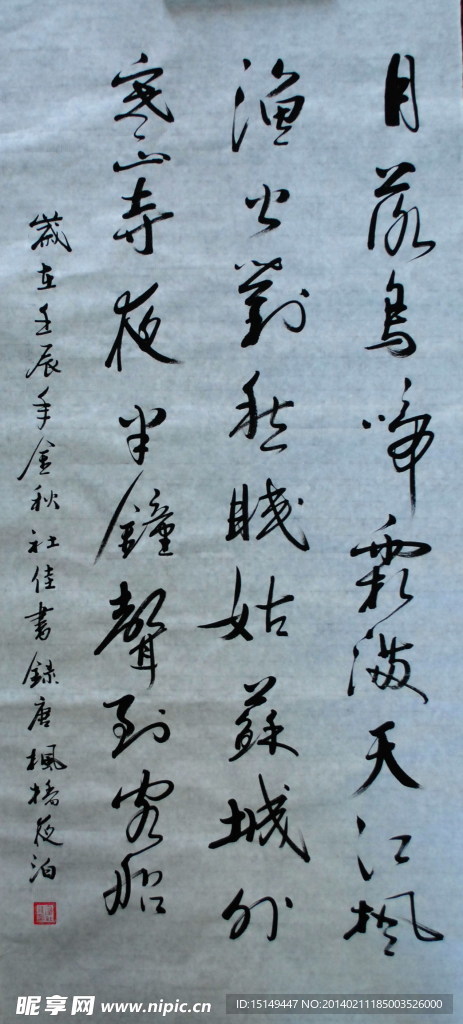 月落烏啼霜滿天江楓
渔火對愁眠姑蘇城外
寒山寺夜半鐘聲到客船
歲在壬辰年金秋社佳書錄唐楓橋夜泊
昵享网 www.nipic.cn
ID:15149447 NO:20140211185003526000